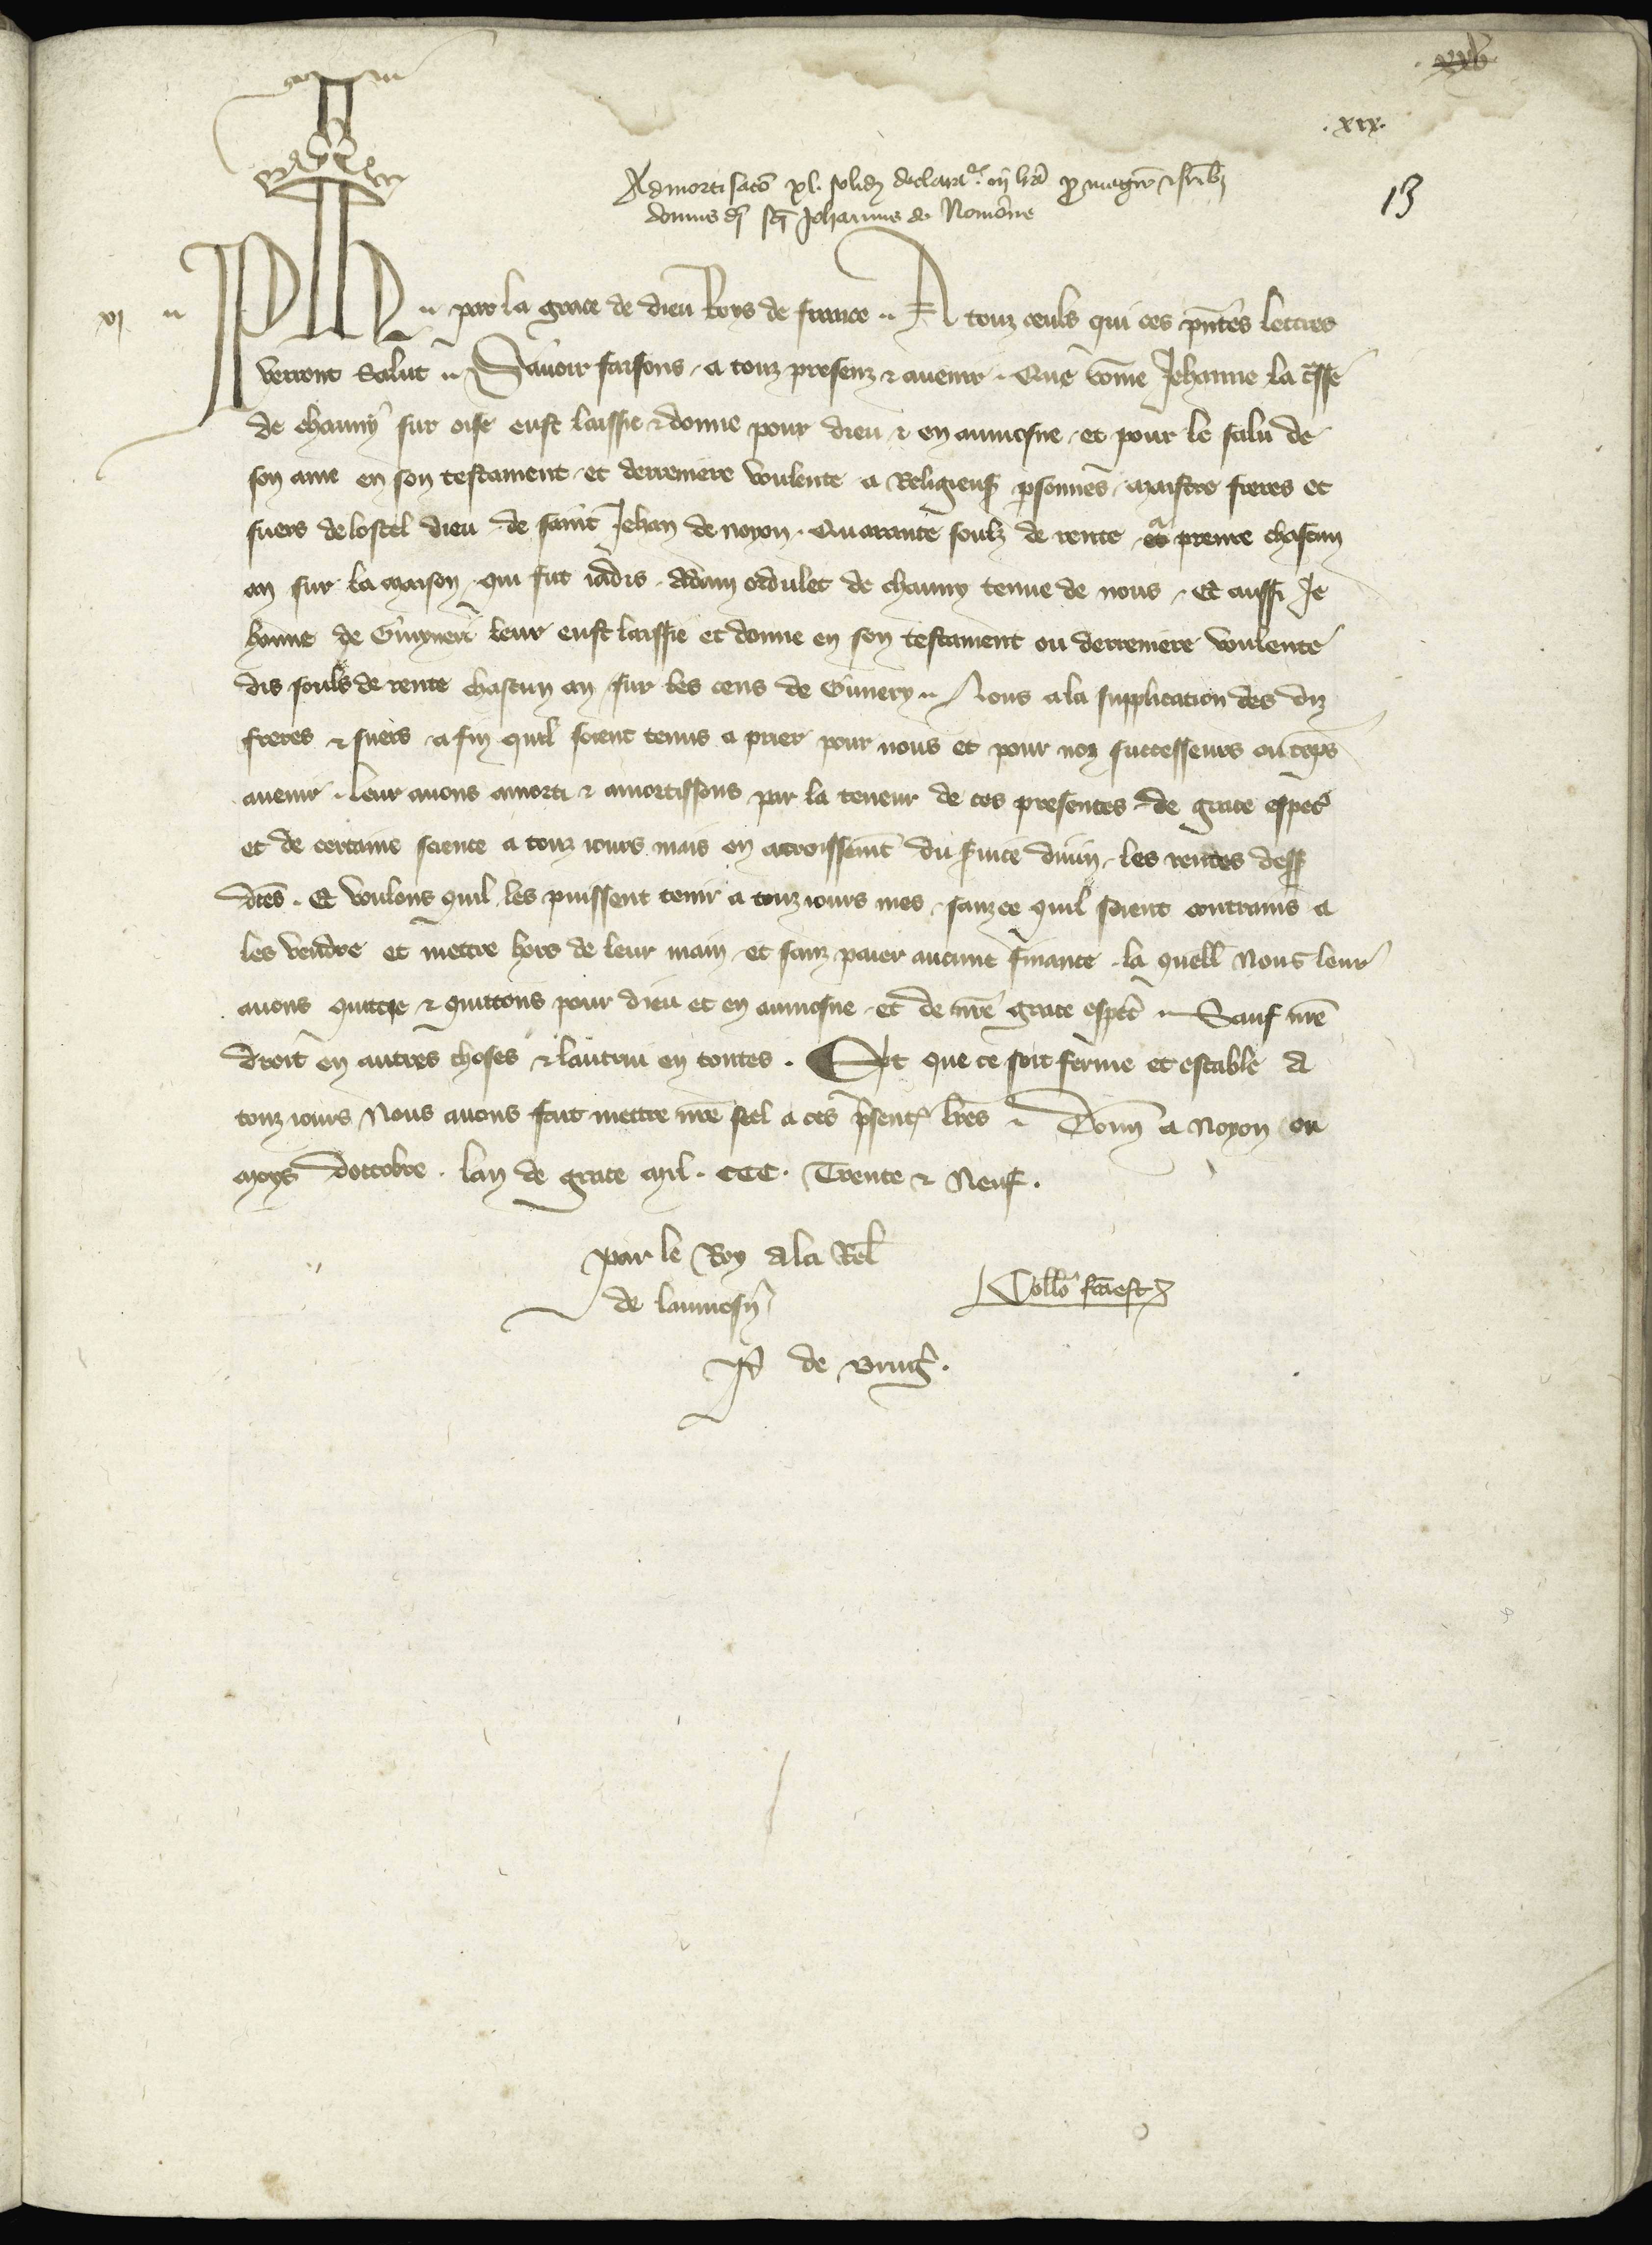 xxv
.xix.
13
Admortisaco xl. solid declarat in lra p magro & frib
domus di sci Johannis de Nomone
xj
Ph par la grace de dieu Roys de france A touz ceuls qui ces pntes lettres
verront Salut Savoir faisons a touz presenz & avenir Que come Jehanne la
de chauny sur oise eust laissie & donne pour dieu & en aumosne et pour le salu de
son ame en son testament et derreniere voulente a Religieus psonnes maistre freres et
suers de lostel dieu de saint Jehan de noyon Quarante soulz de rente a prenre chascun
an sur la maison qui fut iadis Adam de chauny tenue de nous Et aussi Je
hanne de leur eust laissie et donne en son testament ou derreniere voulente
dis souls de rente chascun an sur les cens de Nous a la supplication des diz
freres & suers a fin quil soient tenus a prier pour nous et pour noz successeurs ou teps
avenir leur avons amorti & amortissons par la teneur de ces presentes de grace especi
et de certaine science a touz iours mais en acroissemt du svice divin les rentes dess
dtes Et voulons quil les puissent tenir a touz iours mes sanz ce quil soient contrains a
les vendre et mettre hors de leur main et sanz paier aucune finance la quell nous leur
avons quittie & quittons pour dieu et en aumosne et de nre grace espec Sauf nre
droit en autres choses & lautrui en toutes . Et que ce soit ferme et estable a
touz iours Nous avons fait mettre nre seel a ces psent lres Donn a Noyon ou
moys doctobre . lan de grace mil . CCC . Trente & Neuf .
par le Roy a la Rel
de laumosn
Collo fca est
P de Brug .